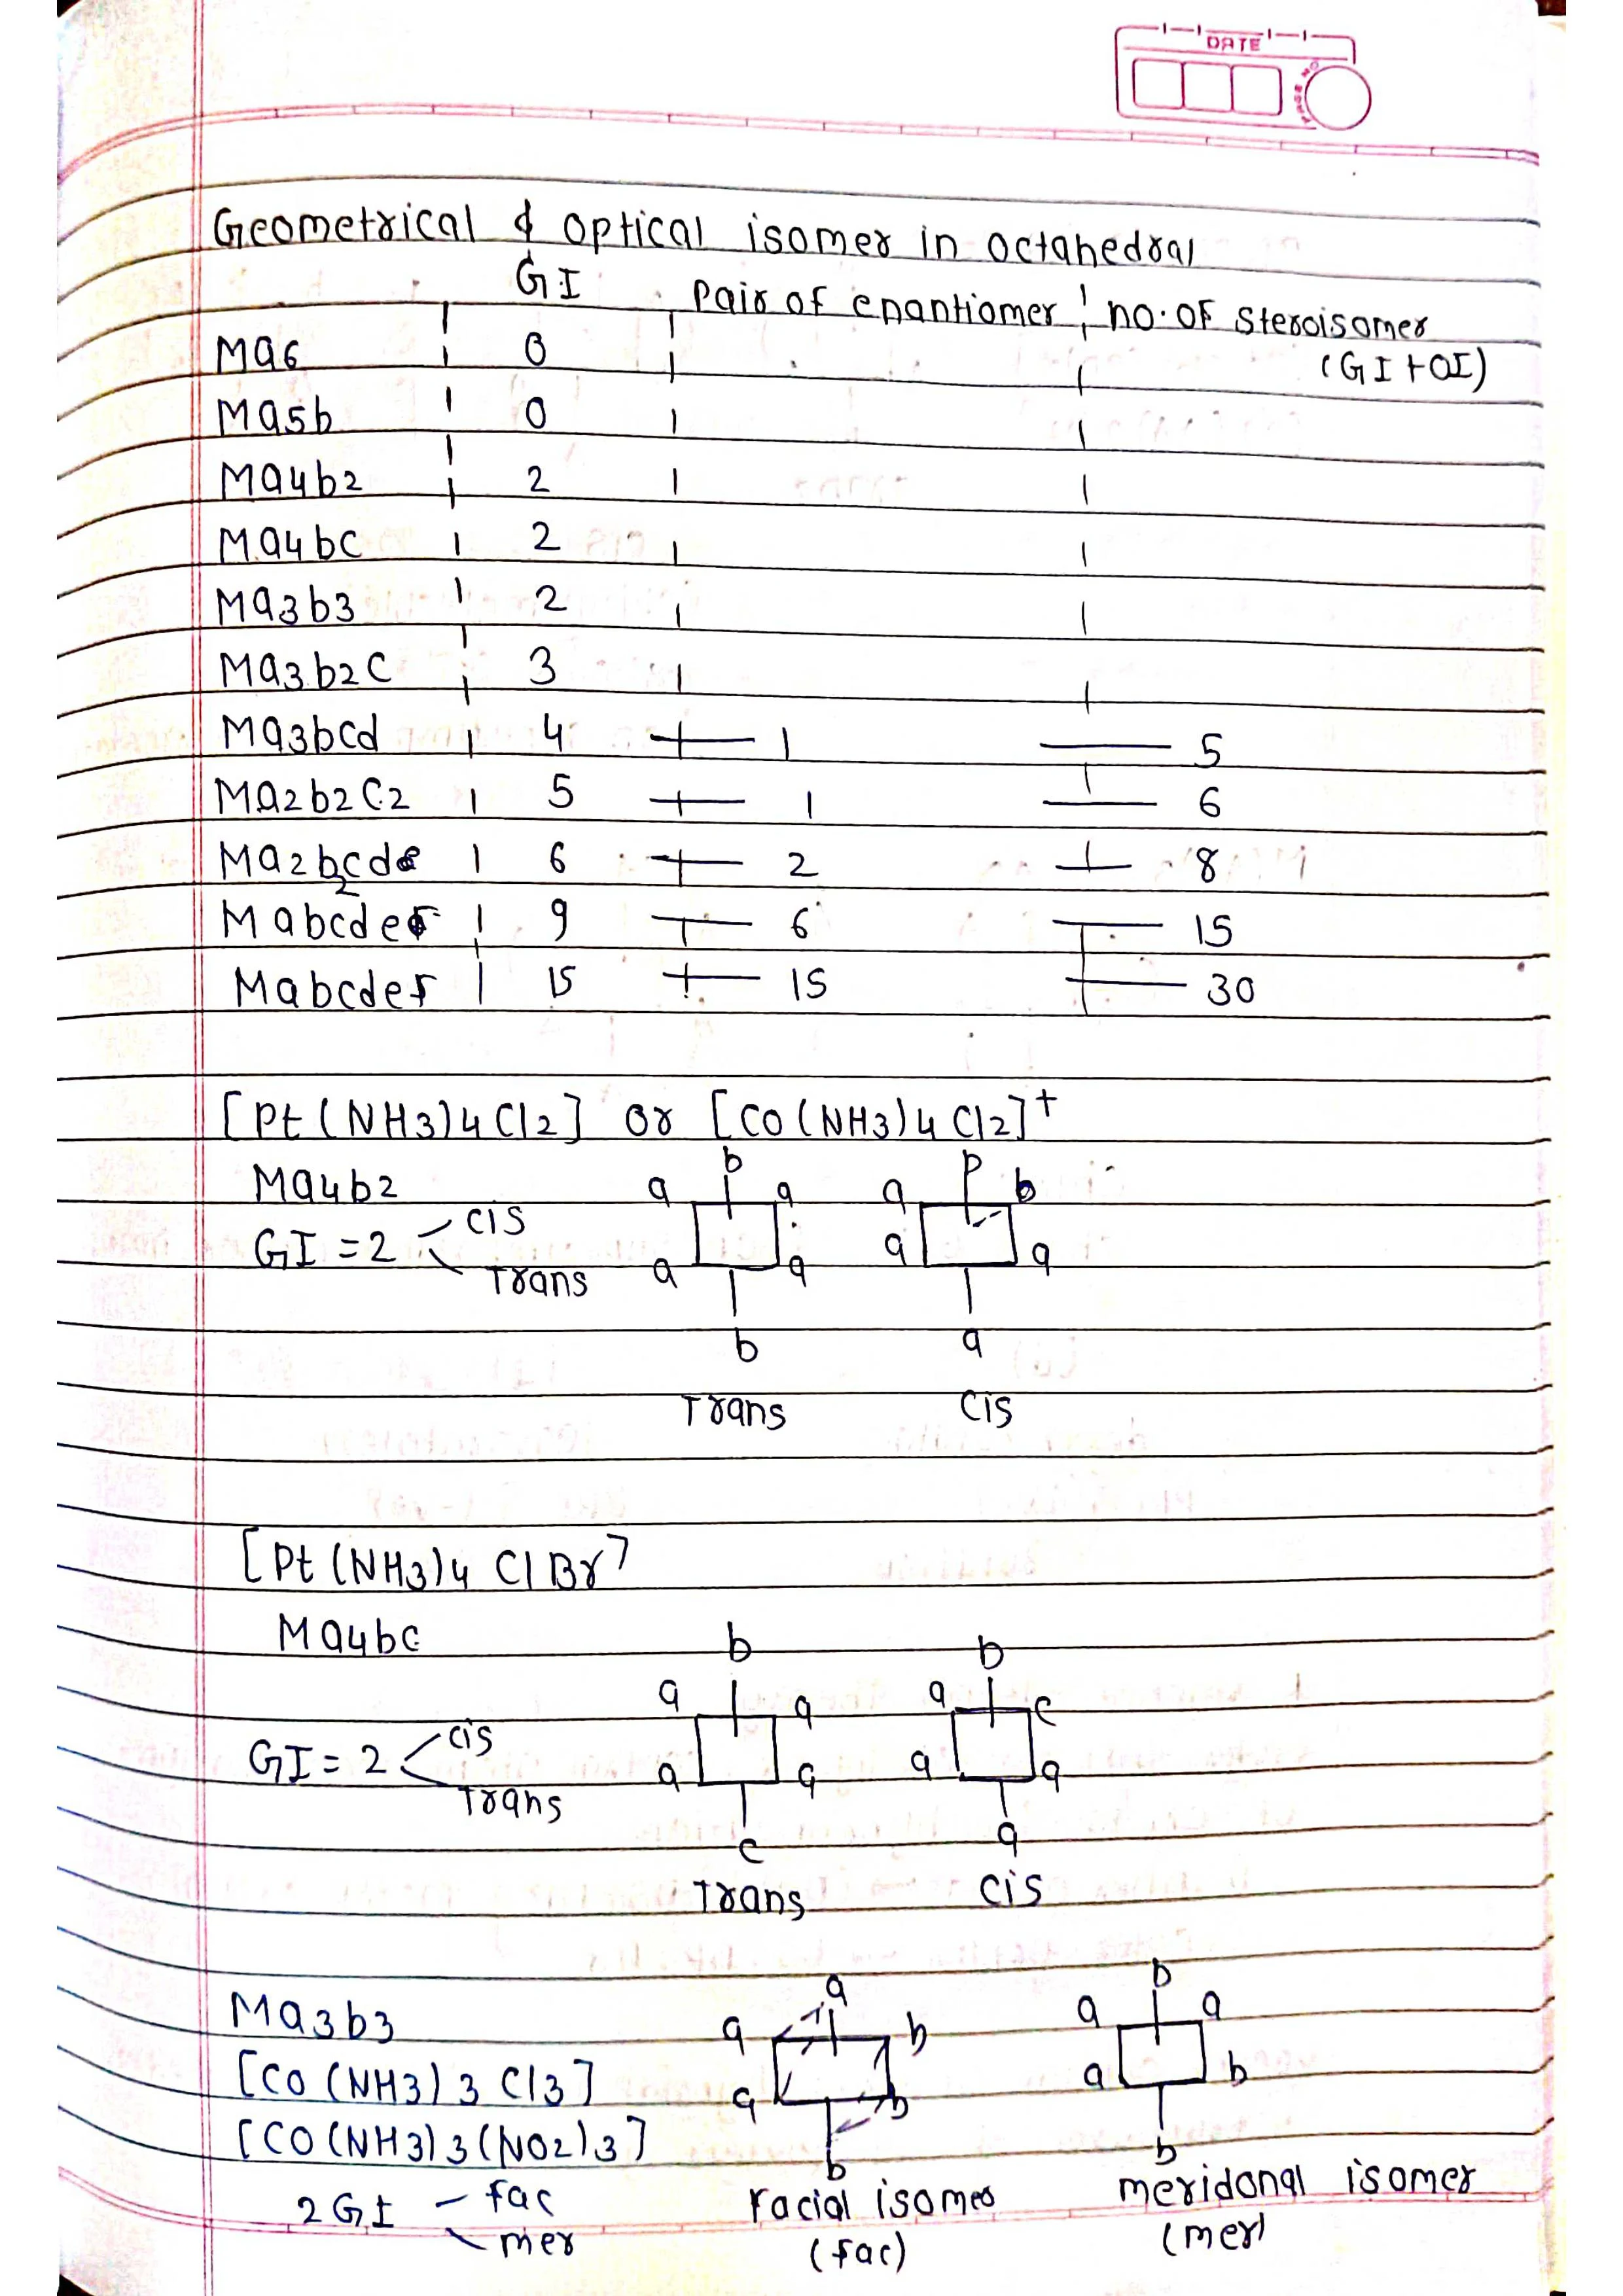 DATE
Geometrical & optical isomer in octahedral
GI pair of enantiomer no. of steroisomer
(GI + OI)
Ma6 0
Ma5b 0
Ma4b2 2
Ma4bc 2
Ma3b3 2
Ma3b2c 3
Ma3bcd 4 1 5
Ma2b2c2 5 1 6
Ma2b2cd 6 2 8
Mabcde 9 6 15
Mabcdef 15 15 30
[Pt (NH3)4 Cl2] or [CO (NH3)4 Cl2]+
Ma4b2
GI = 2 cis
Trans
b
a a
a a
b
Trans
b
a b
a a
a
cis
[Pt (NH3)4 Cl Br]
Ma4bc
GI = 2 cis
Trans
b
a a
a a
c
Trans
b
a c
a a
a
cis
Ma3b3
[CO (NH3)3 Cl3]
[CO (NH3)3 (NO2)3]
2 GI - fac
mer
a
a b
a b
b
facial isomer
(fac)
b
a a
a b
b
meridonal isomer
(mer)